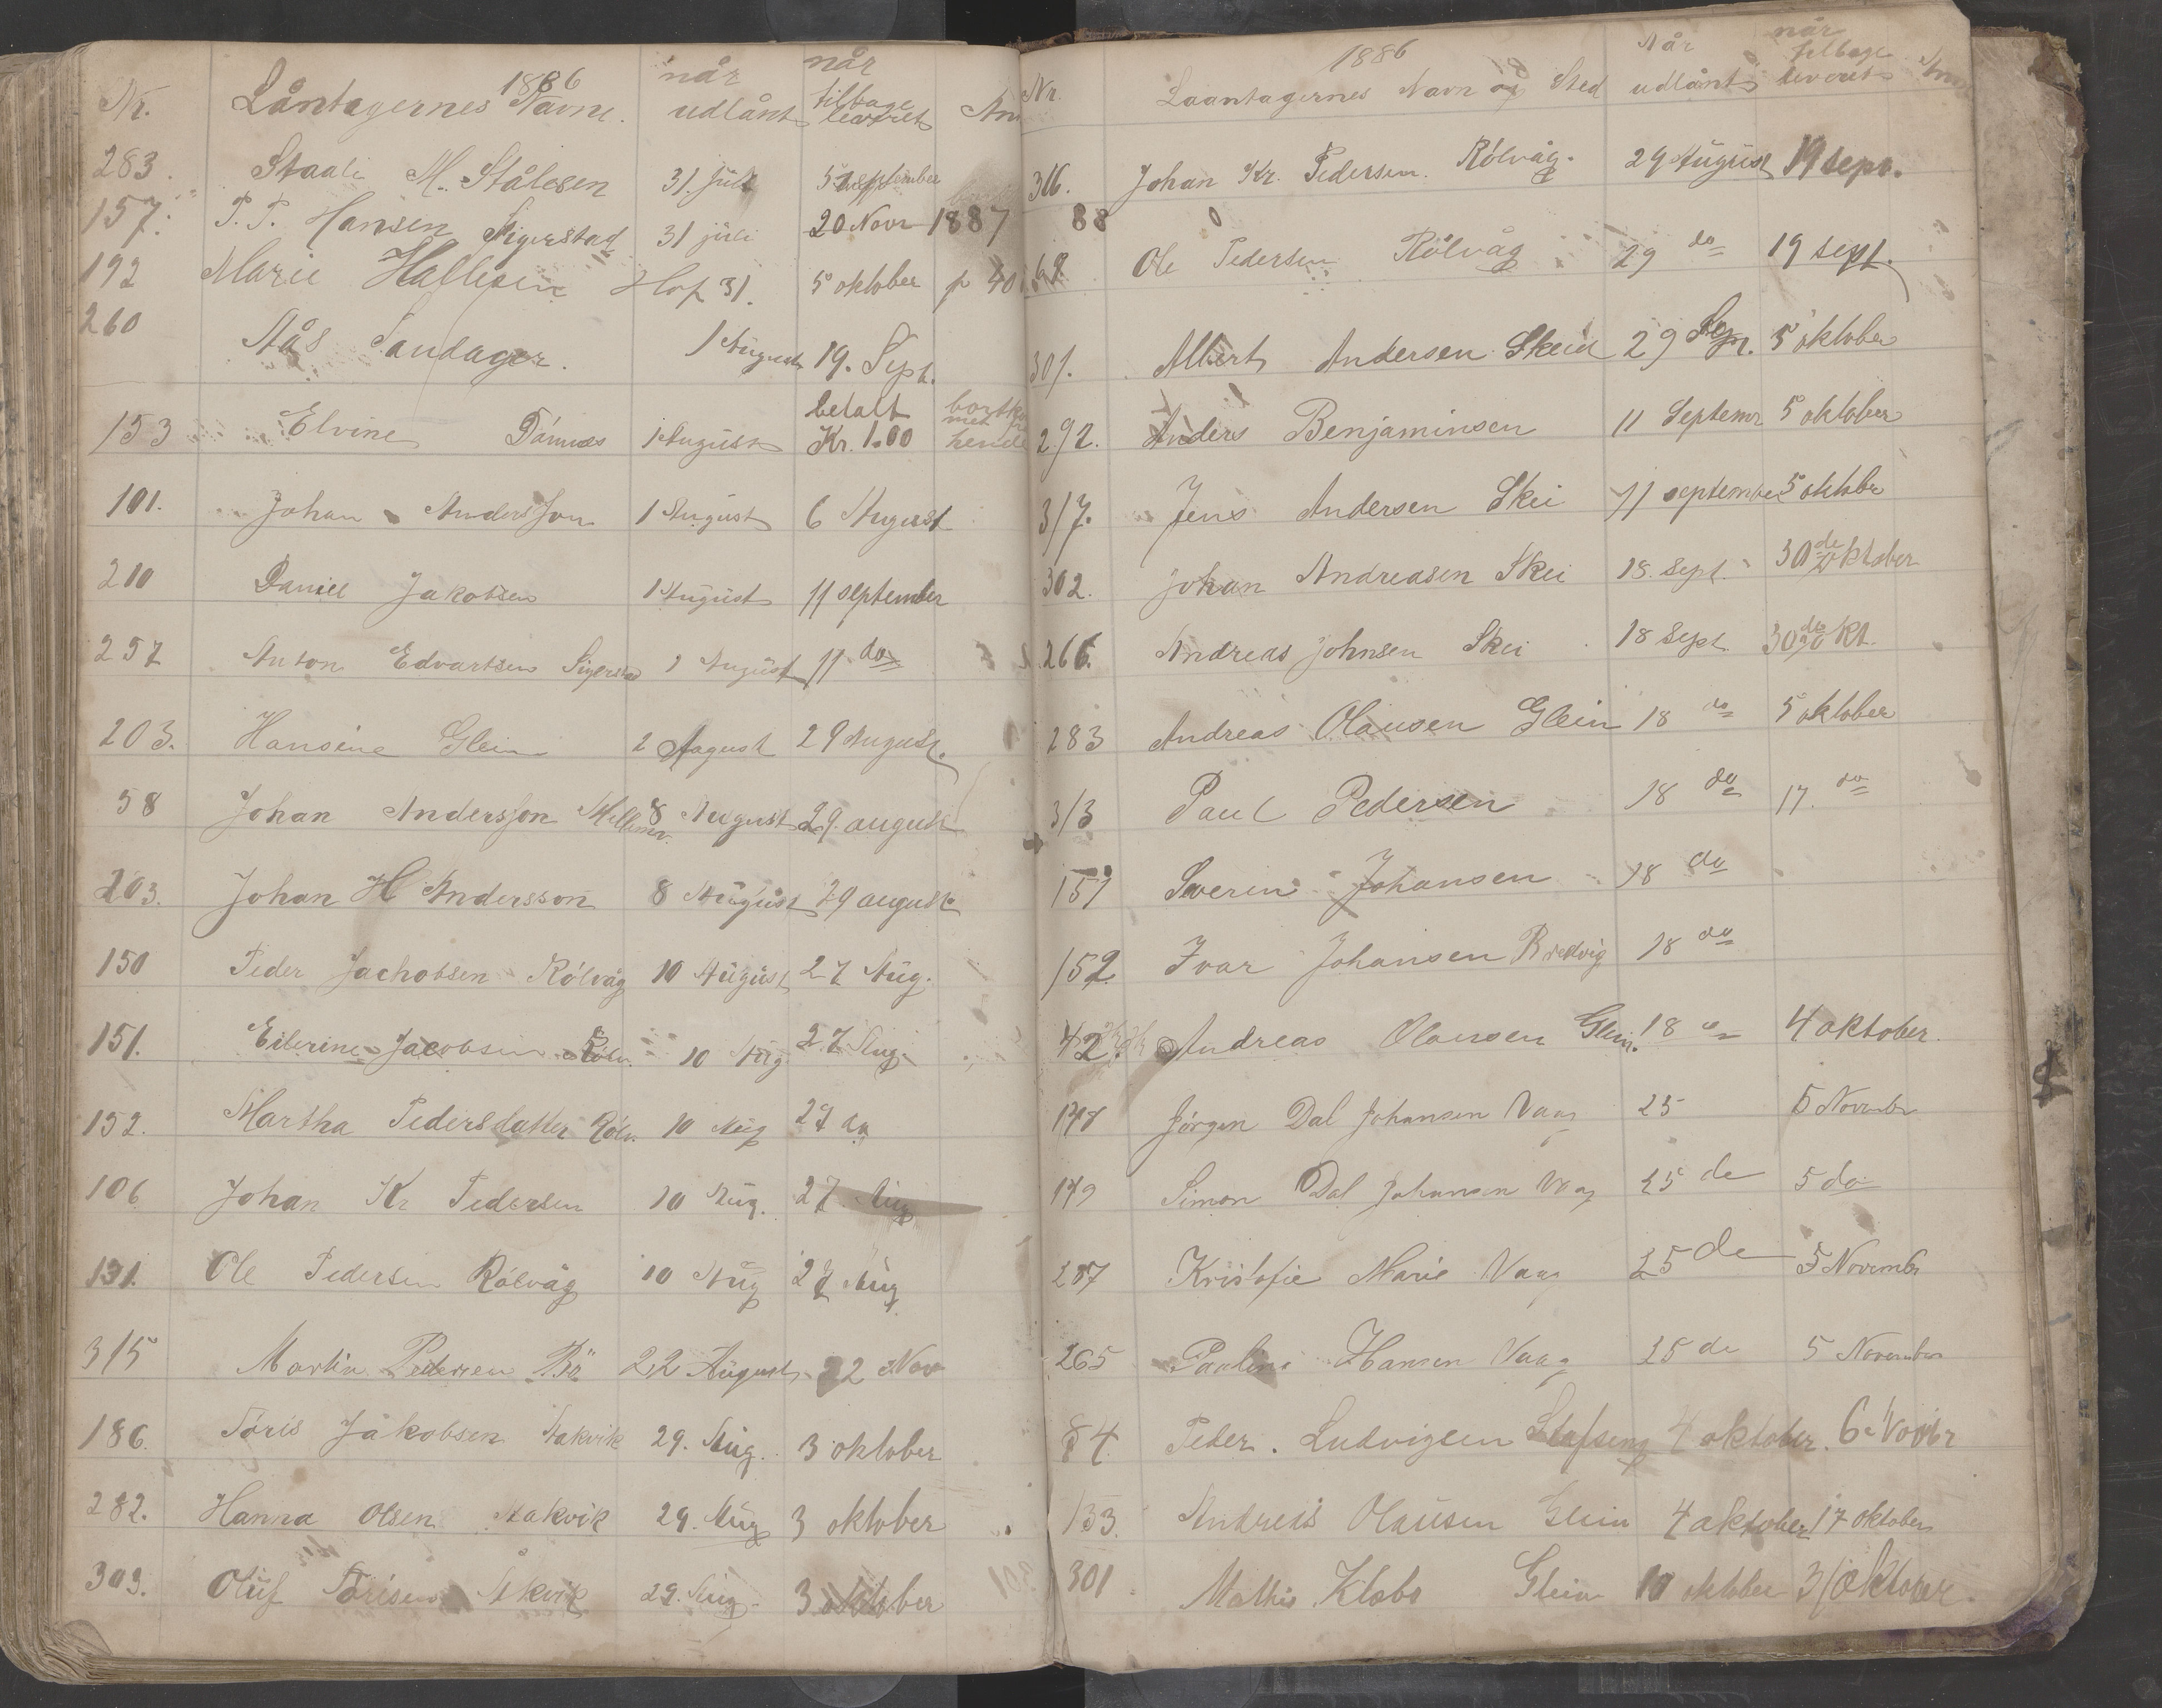 1886
Nr. Låntagernes Navne. når udlånt når tilbage leveret Anm
283. Staali M. Stålesen 31. juli 5 september
157. P. P. Hansen Sigerstad 31 juli 20 Novr 1887
192 Marie Hallesen Hof 31. 5 oktober p 40
260 Aås Sandager. 1 August 19. Sept.
153 Elvine Dønnes 1 August betalt Kr. 1.00
101. Johan Andersson 1 August 6 August
210 Daniel Jakobsen 1 August 11 september
257 Anton Edvartsen Sigerstad 1 August 11 do
203. Hansine Glein 2 August 29 August.
58 Johan Andersson 8 August 29. august
203. Johan H Andersson 8 August 29 august
150 Peder Jachobsen Rölvåg 10 August 27 Aug.
151. Eilerine Jacobsen Rölv. 10 Aug. 27 Aug.
152. Martha Pedersdatter Rölv. 10 Aug 27 da
106 Johan Kr Pedersen 10 Aug. 27 Aug
131. Ole Pedersen Rølvåg 10 Aug 27 Aug
315 Martin Pedersen Bö 22 August 22 Nov
186. Töris Jakobsen Aakvik 29. Aug. 3 oktober
282. Hanna Olsen Aakvik 29. Aug 3 oktober
303. Oluf Tørisen Åkvik 29. Aug. 3 oktober
1886
Nr. Laantagernes Navn og Sted Når udlånt når tilbage leveret Anm
316. Johan Kr. Pedersen. Rölvåg. 29 August 19 sept.
88
68 Ole Pedersen Rölvåg 29 do 19 sept.
301. Albert Andersen Skeid 29 Sept. 5 oktober
292. Anders Benjaminsen 11 Septemr 5 oktober
317. Jens Andersen Skei 11 september 5 oktobr
302. Johan Andreasen Skei 18. Sept. 30 de oktober
266. Andreas Johnsen Skei 18 Sept. 30 de okt.
283 Andreas Olausen Glein 18 do 5 oktober
313 Paul Pedersen 18 do 17. do
151 Severin Johansen 18 do
152. Ivar Johansen Bredvig 18 do
42 Andreas Olausen Glein. 18 do 4 oktober.
148 Jörgen Dal Johansen Vaag 25 5 November
149 Simon Dal Johansen Vaag 25 de 5 do
287 Kristofie Marie Vaag 25 de 5 Novembr
265 Pauline Hansen Vaag 25 de 5 November
84. Peder. Ludvigsen 4 oktober. 6 Novbr
133. Andreas Olausen Glein 4 oktober 17 oktober
301 Mathis Klæbo Glein 10 oktober 31 Oktober.